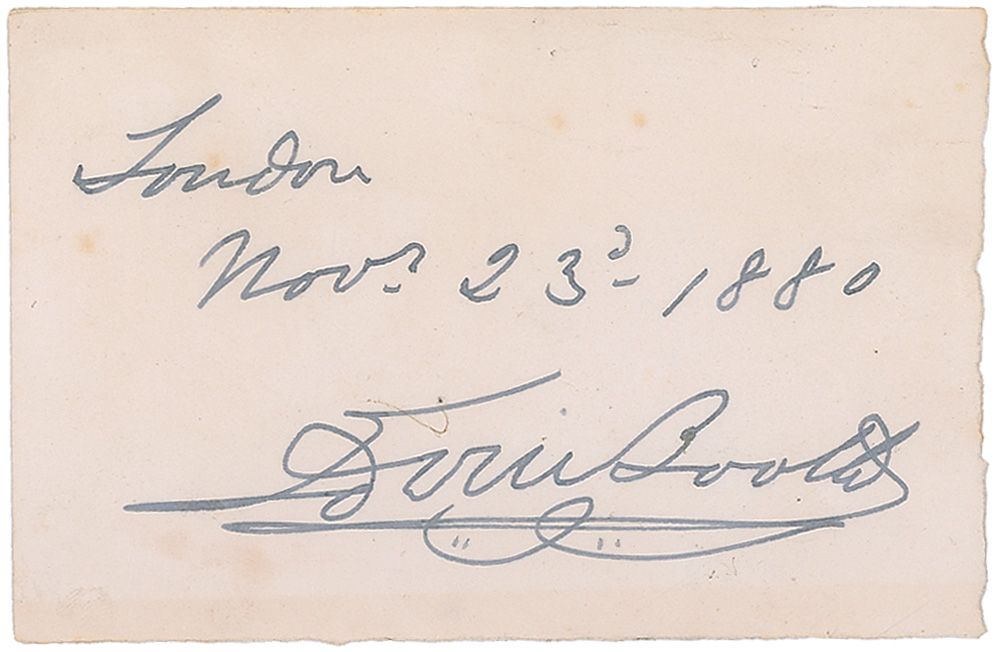 London
Novr. 23d. 1880
Edwin Booth